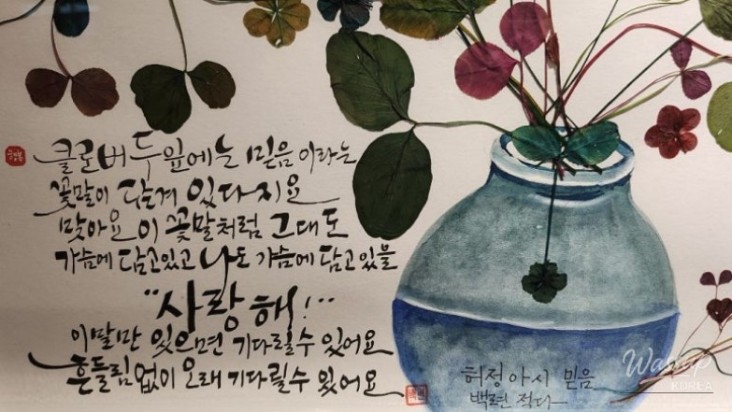 클로버 두 잎에는 믿음이라는
꽃말이 담겨 있다지요
맞아요 이 꽃말처럼 그대도
가슴에 담고 있고 나도 가슴에 담고 있을
"사랑해!"
이 말만 있으면 기다릴 수 있어요
흔들림 없이 오래 기다릴 수 있어요
허정아 시 믿음
백련 적다
Wassup
KOREA